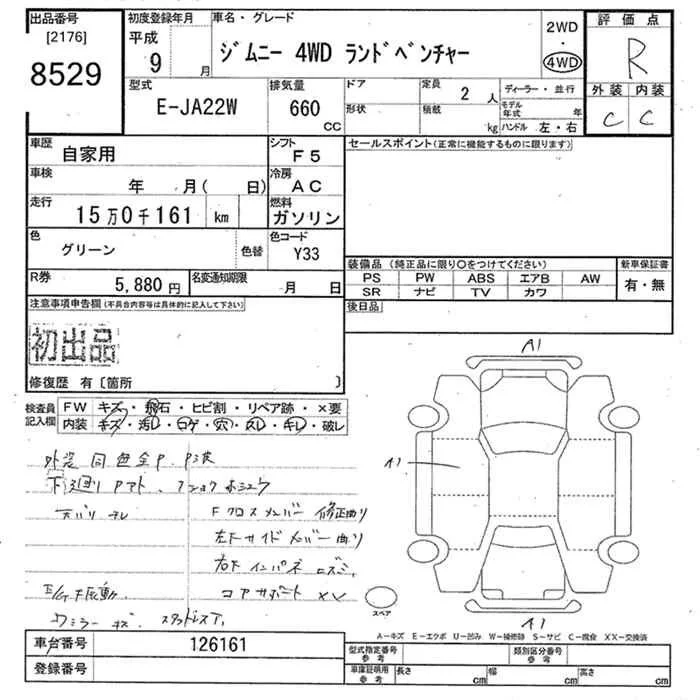 出品番号
[2176]
8529
初度登録年月
平成
9 月
車名・グレード
ジムニー 4WD ランドベンチャー
2WD
・
4WD
評価点
R
外装 内装
C C
型式
E-JA22W
排気量
660
CC
ドア
形状
定員
2 人
積載
kg
ディーラー・並行
モデル年式 年
ハンドル 左・右
車歴
自家用
シフト
F5
セールスポイント(正常に機能するものに限ります)
車検
年 月( 日)
冷房
AC
走行
15万0千161 km
燃料
ガソリン
色
グリーン
色替
色コード
Y33
R券
5,880円
名変通知期限
月 日
装備品 (純正品に限り○をつけてください)
新車保証書
PS PW ABS エアB AW
SR ナビ TV カワ
有・無
注意事項申告欄(不具合内容等は具体的に記入して下さい)
後日品
初出品
修復歴 有〔箇所 〕
検査員記入欄
FW キズ・飛石・ヒビ割・リペア跡・×要
内装 キズ・汚レ・コゲ・穴・スレ・キレ・破レ
外装 同色全P.
下廻り
Fクロスメンバー 修正曲り
左Fサイドメンバー曲り
右F インパネ
コアサポート XV
E/G 振動
A1
A1
A1
スペア
A-キズ E-エクボ U-凹み W-補修跡 S-サビ C-腐食 XX-交換済
車台番号
126161
登録番号
型式指定番号
参考
類別区分番号
参考
車庫証明用
参考
長さ cm
幅 cm
高さ cm